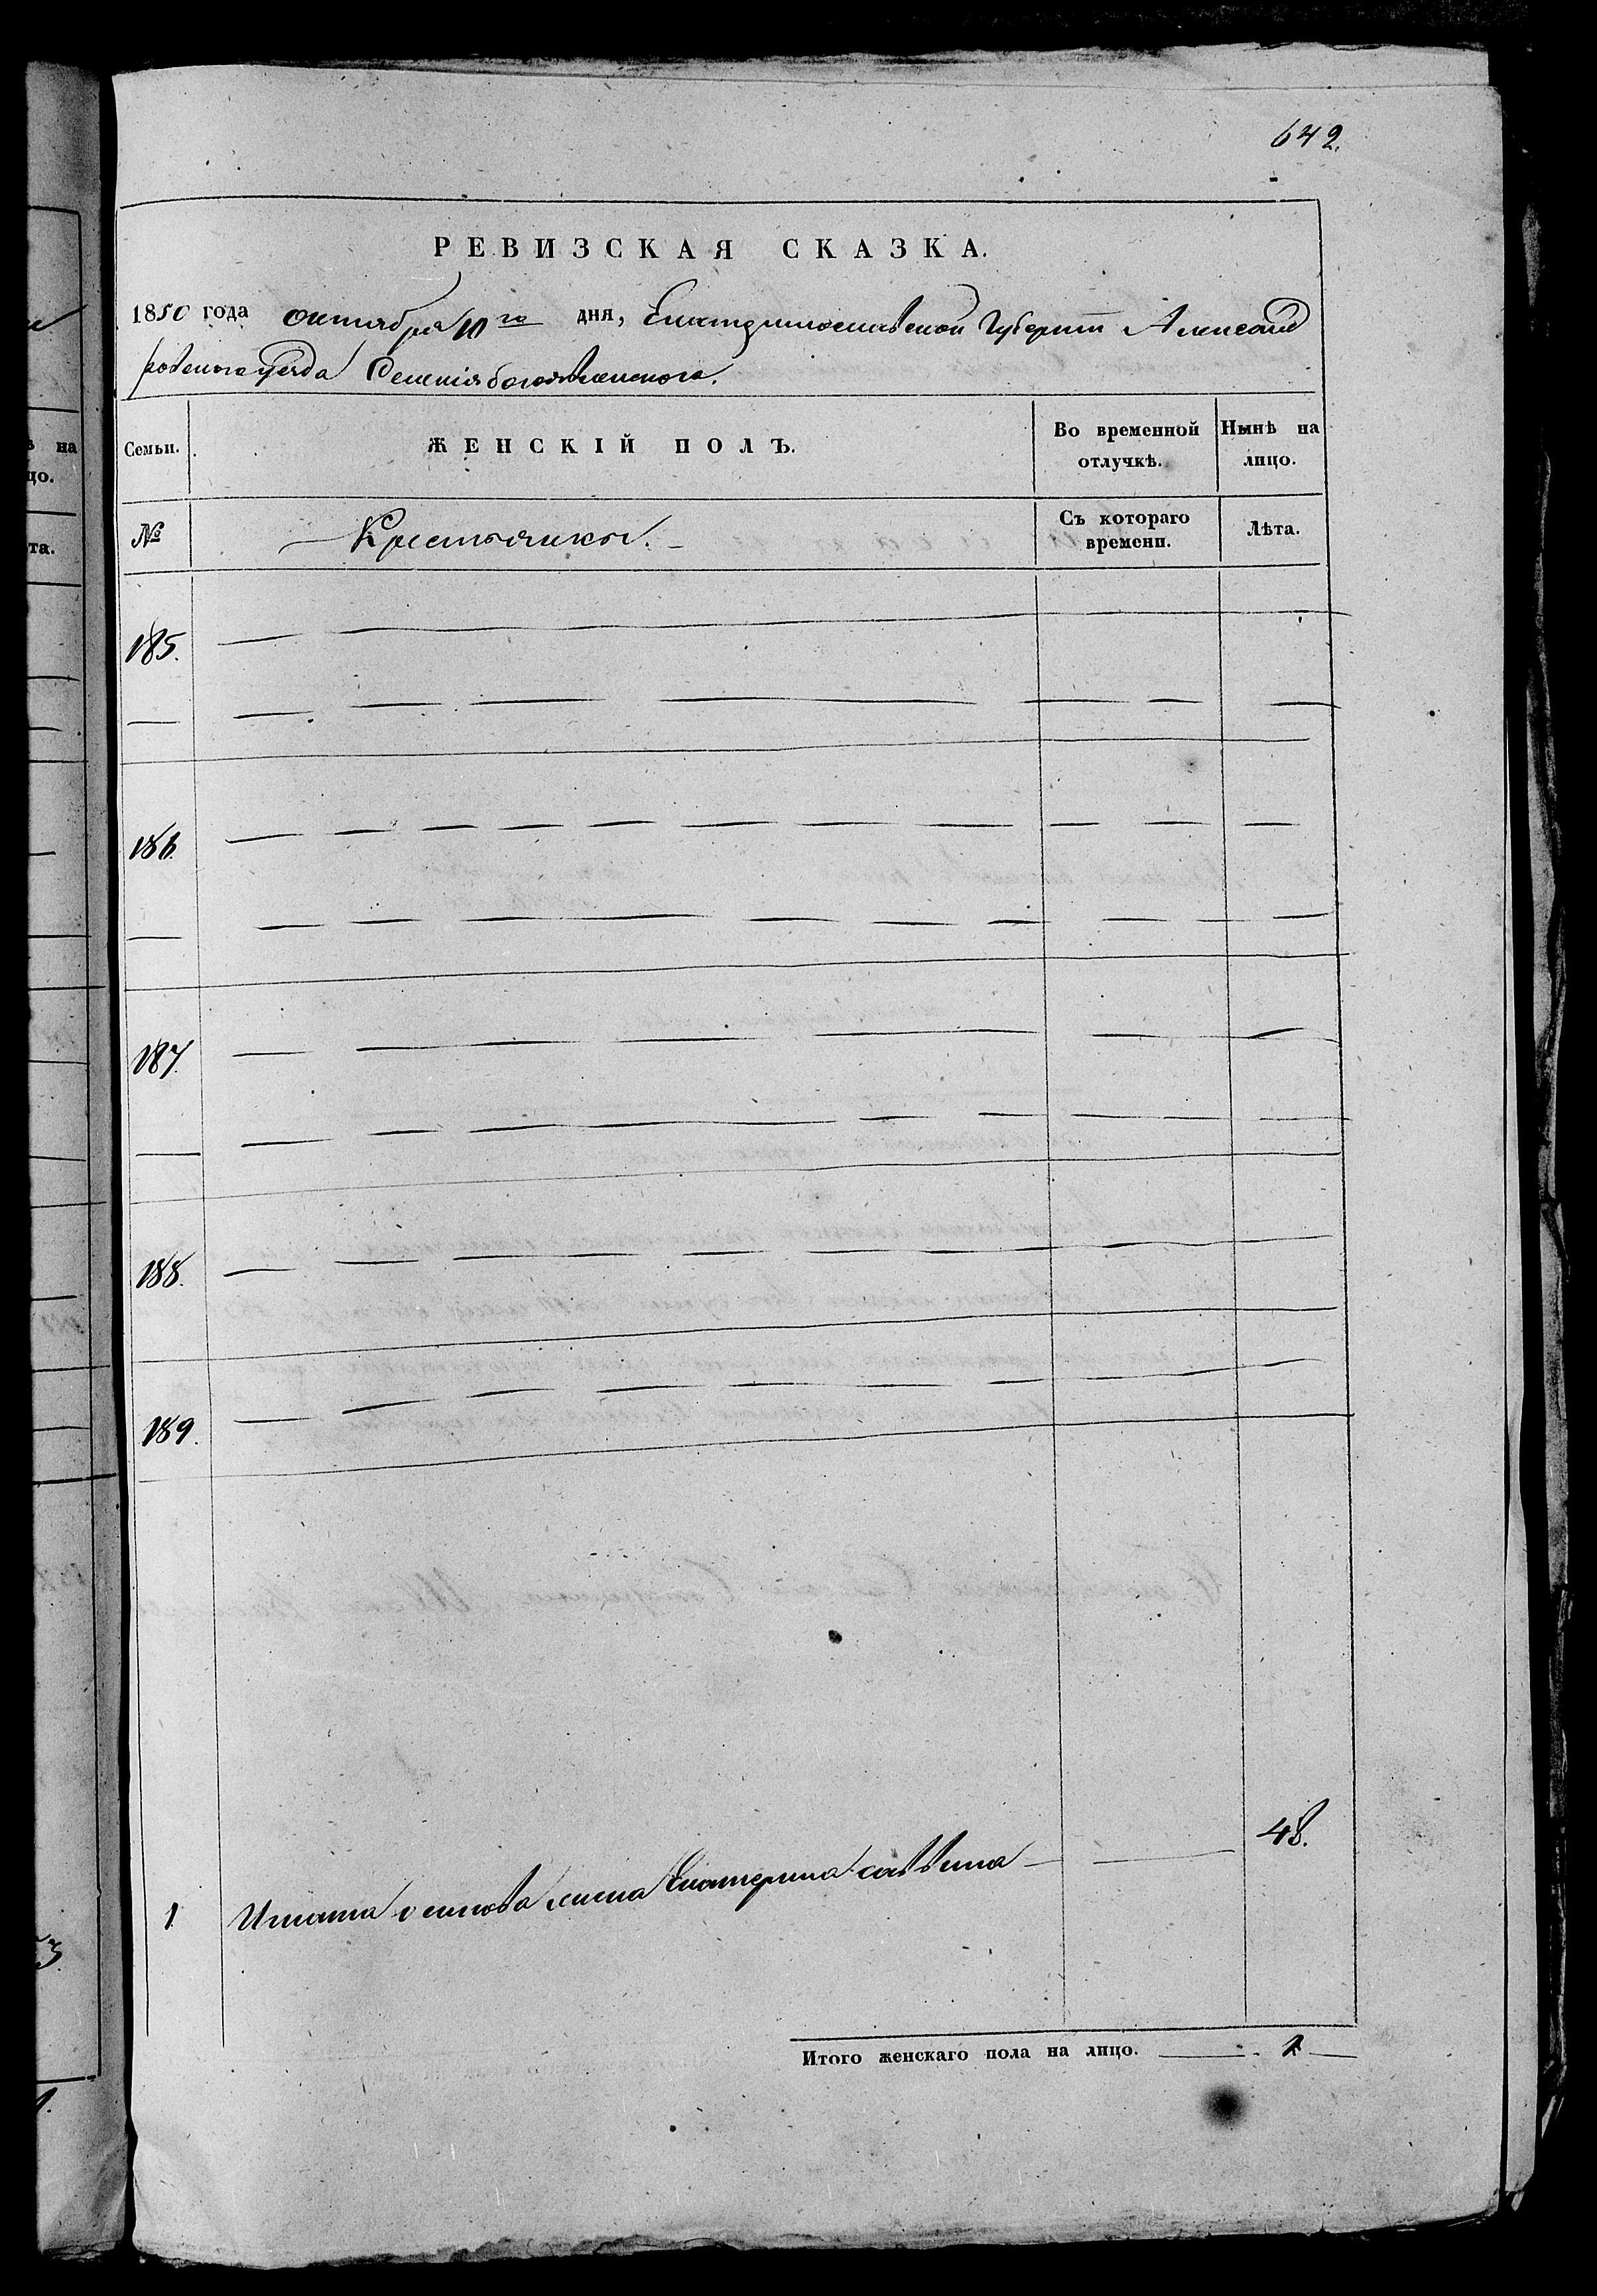 642.
РЕВИЗСКАЯ СКАЗКА.
1850 года октября 10го дня, Екатеринославской Губернии Александ
ровскаго уезда Селения богоявленского.
Семьи. ЖЕНСКІЙ ПОЛЪ. Во временной отлучкѣ. Нынѣ на лицо.
№ Крестьянки. Съ котораго времени. Лѣта.
185.
186.
187.
188.
189.
48.
1 Игната осипова жена Екатерина савѣлева
Итого женскаго пола на лицо. 1
на
цо.
та.